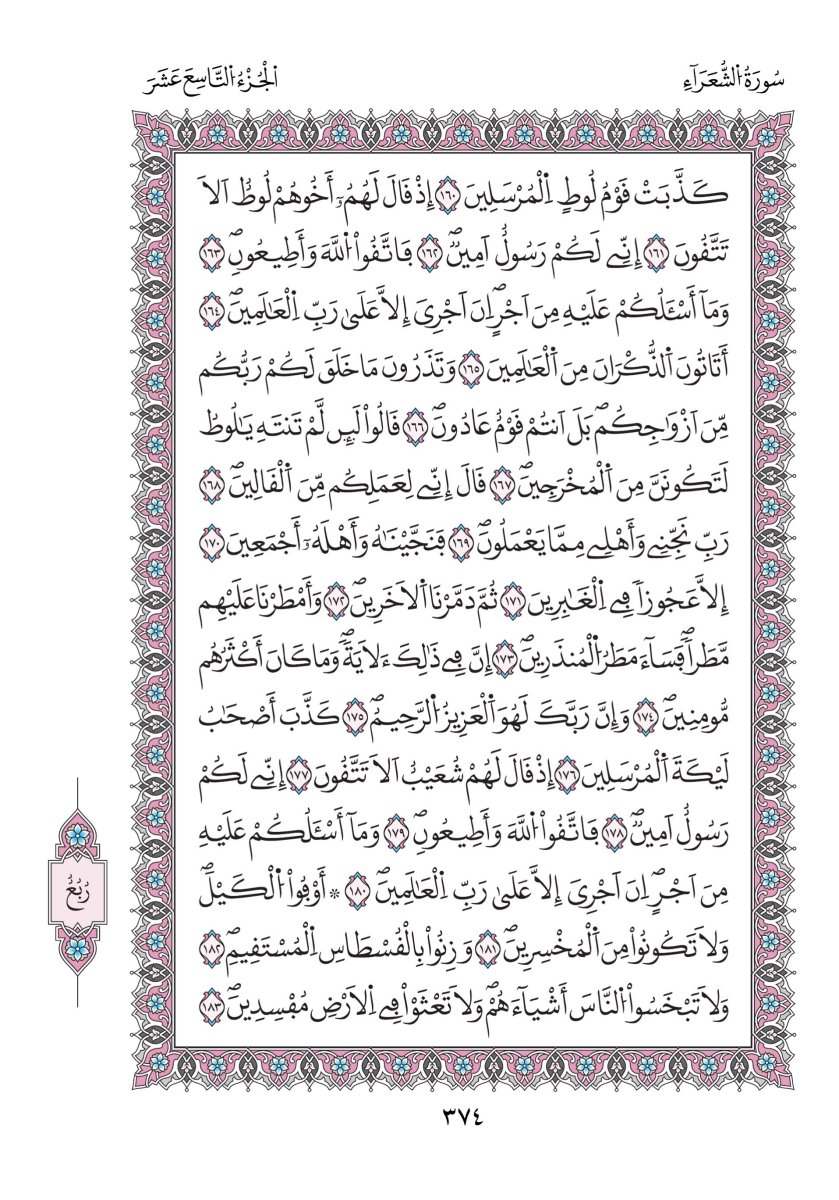 سُورَةُ الشُّعَرَآءِ
اَلْجُزْءُ التَّاسِعَ عَشَرَ
كَذَّبَتْ قَوْمُ لُوطٍ اِلْمُرْسَلِينَ ١٦٠ إِذْ قَالَ لَهُمُۥٓ أَخُوهُمْ لُوطٌ اَلَا
تَتَّقُونَ ١٦١ إِنِّے لَكُمْ رَسُولٌ اَمِينٌ ١٦٢ فَاتَّقُواْ اللَّهَ وَأَطِيعُونِ ١٦٣
وَمَآ أَسْـَٔلُكُمْ عَلَيْهِ مِنَ اَجْرٍ اِنَ اَجْرِىَ إِلَّا عَلَىٰ رَبِّ اِلْعَٰلَمِينَ ١٦٤
أَتَاتُونَ اَلذُّكْرَانَ مِنَ اَلْعَٰلَمِينَ ١٦٥ وَتَذَرُونَ مَا خَلَقَ لَكُمْ رَبُّكُم
مِّنَ اَزْوَٰجِكُم بَلَ اَنتُمْ قَوْمٌ عَادُونَ ١٦٦ قَالُواْ لَئِن لَّمْ تَنتَهِ يَٰلُوطُ
لَتَكُونَنَّ مِنَ اَلْمُخْرَجِينَ ١٦٧ قَالَ إِنِّے لِعَمَلِكُم مِّنَ اَلْقَالِينَ ١٦٨
رَبِّ نَجِّنِے وَأَهْلِے مِمَّا يَعْمَلُونَ ١٦٩ فَنَجَّيْنَٰهُ وَأَهْلَهُۥٓ أَجْمَعِينَ ١٧٠
إِلَّا عَجُوزاً فِے اِلْغَٰبِرِينَ ١٧١ ثُمَّ دَمَّرْنَا اَلَاخَرِينَ ١٧٢ وَأَمْطَرْنَا عَلَيْهِم
مَّطَراً فَسَآءَ مَطَرُ اُلْمُنذَرِينَ ١٧٣ إِنَّ فِے ذَٰلِكَ ءَلَايَةً وَمَا كَانَ أَكْثَرُهُم
مُّومِنِينَ ١٧٤ وَإِنَّ رَبَّكَ لَهُوَ اَلْعَزِيزُ اُلرَّحِيمُ ١٧٥ كَذَّبَ أَصْحَٰبُ
لَيْكَةَ اَلْمُرْسَلِينَ ١٧٦ إِذْ قَالَ لَهُمْ شُعَيْبٌ اَلَا تَتَّقُونَ ١٧٧ إِنِّے لَكُمْ
رَسُولٌ اَمِينٌ ١٧٨ فَاتَّقُواْ اللَّهَ وَأَطِيعُونِ ١٧٩ وَمَآ أَسْـَٔلُكُمْ عَلَيْهِ
مِنَ اَجْرٍ اِنَ اَجْرِىَ إِلَّا عَلَىٰ رَبِّ اِلْعَٰلَمِينَ ١٨٠ ۞ أَوْفُواْ اُلْكَيْلَ
وَلَا تَكُونُواْ مِنَ اَلْمُخْسِرِينَ ١٨١ وَزِنُواْ بِالْقُسْطَاسِ اِلْمُسْتَقِيمِ ١٨٢
وَلَا تَبْخَسُواْ اُلنَّاسَ أَشْيَآءَهُمْ وَلَا تَعْثَوْاْ فِے اِلَارْضِ مُفْسِدِينَ ١٨٣
رُبُعُ
٣٧٤